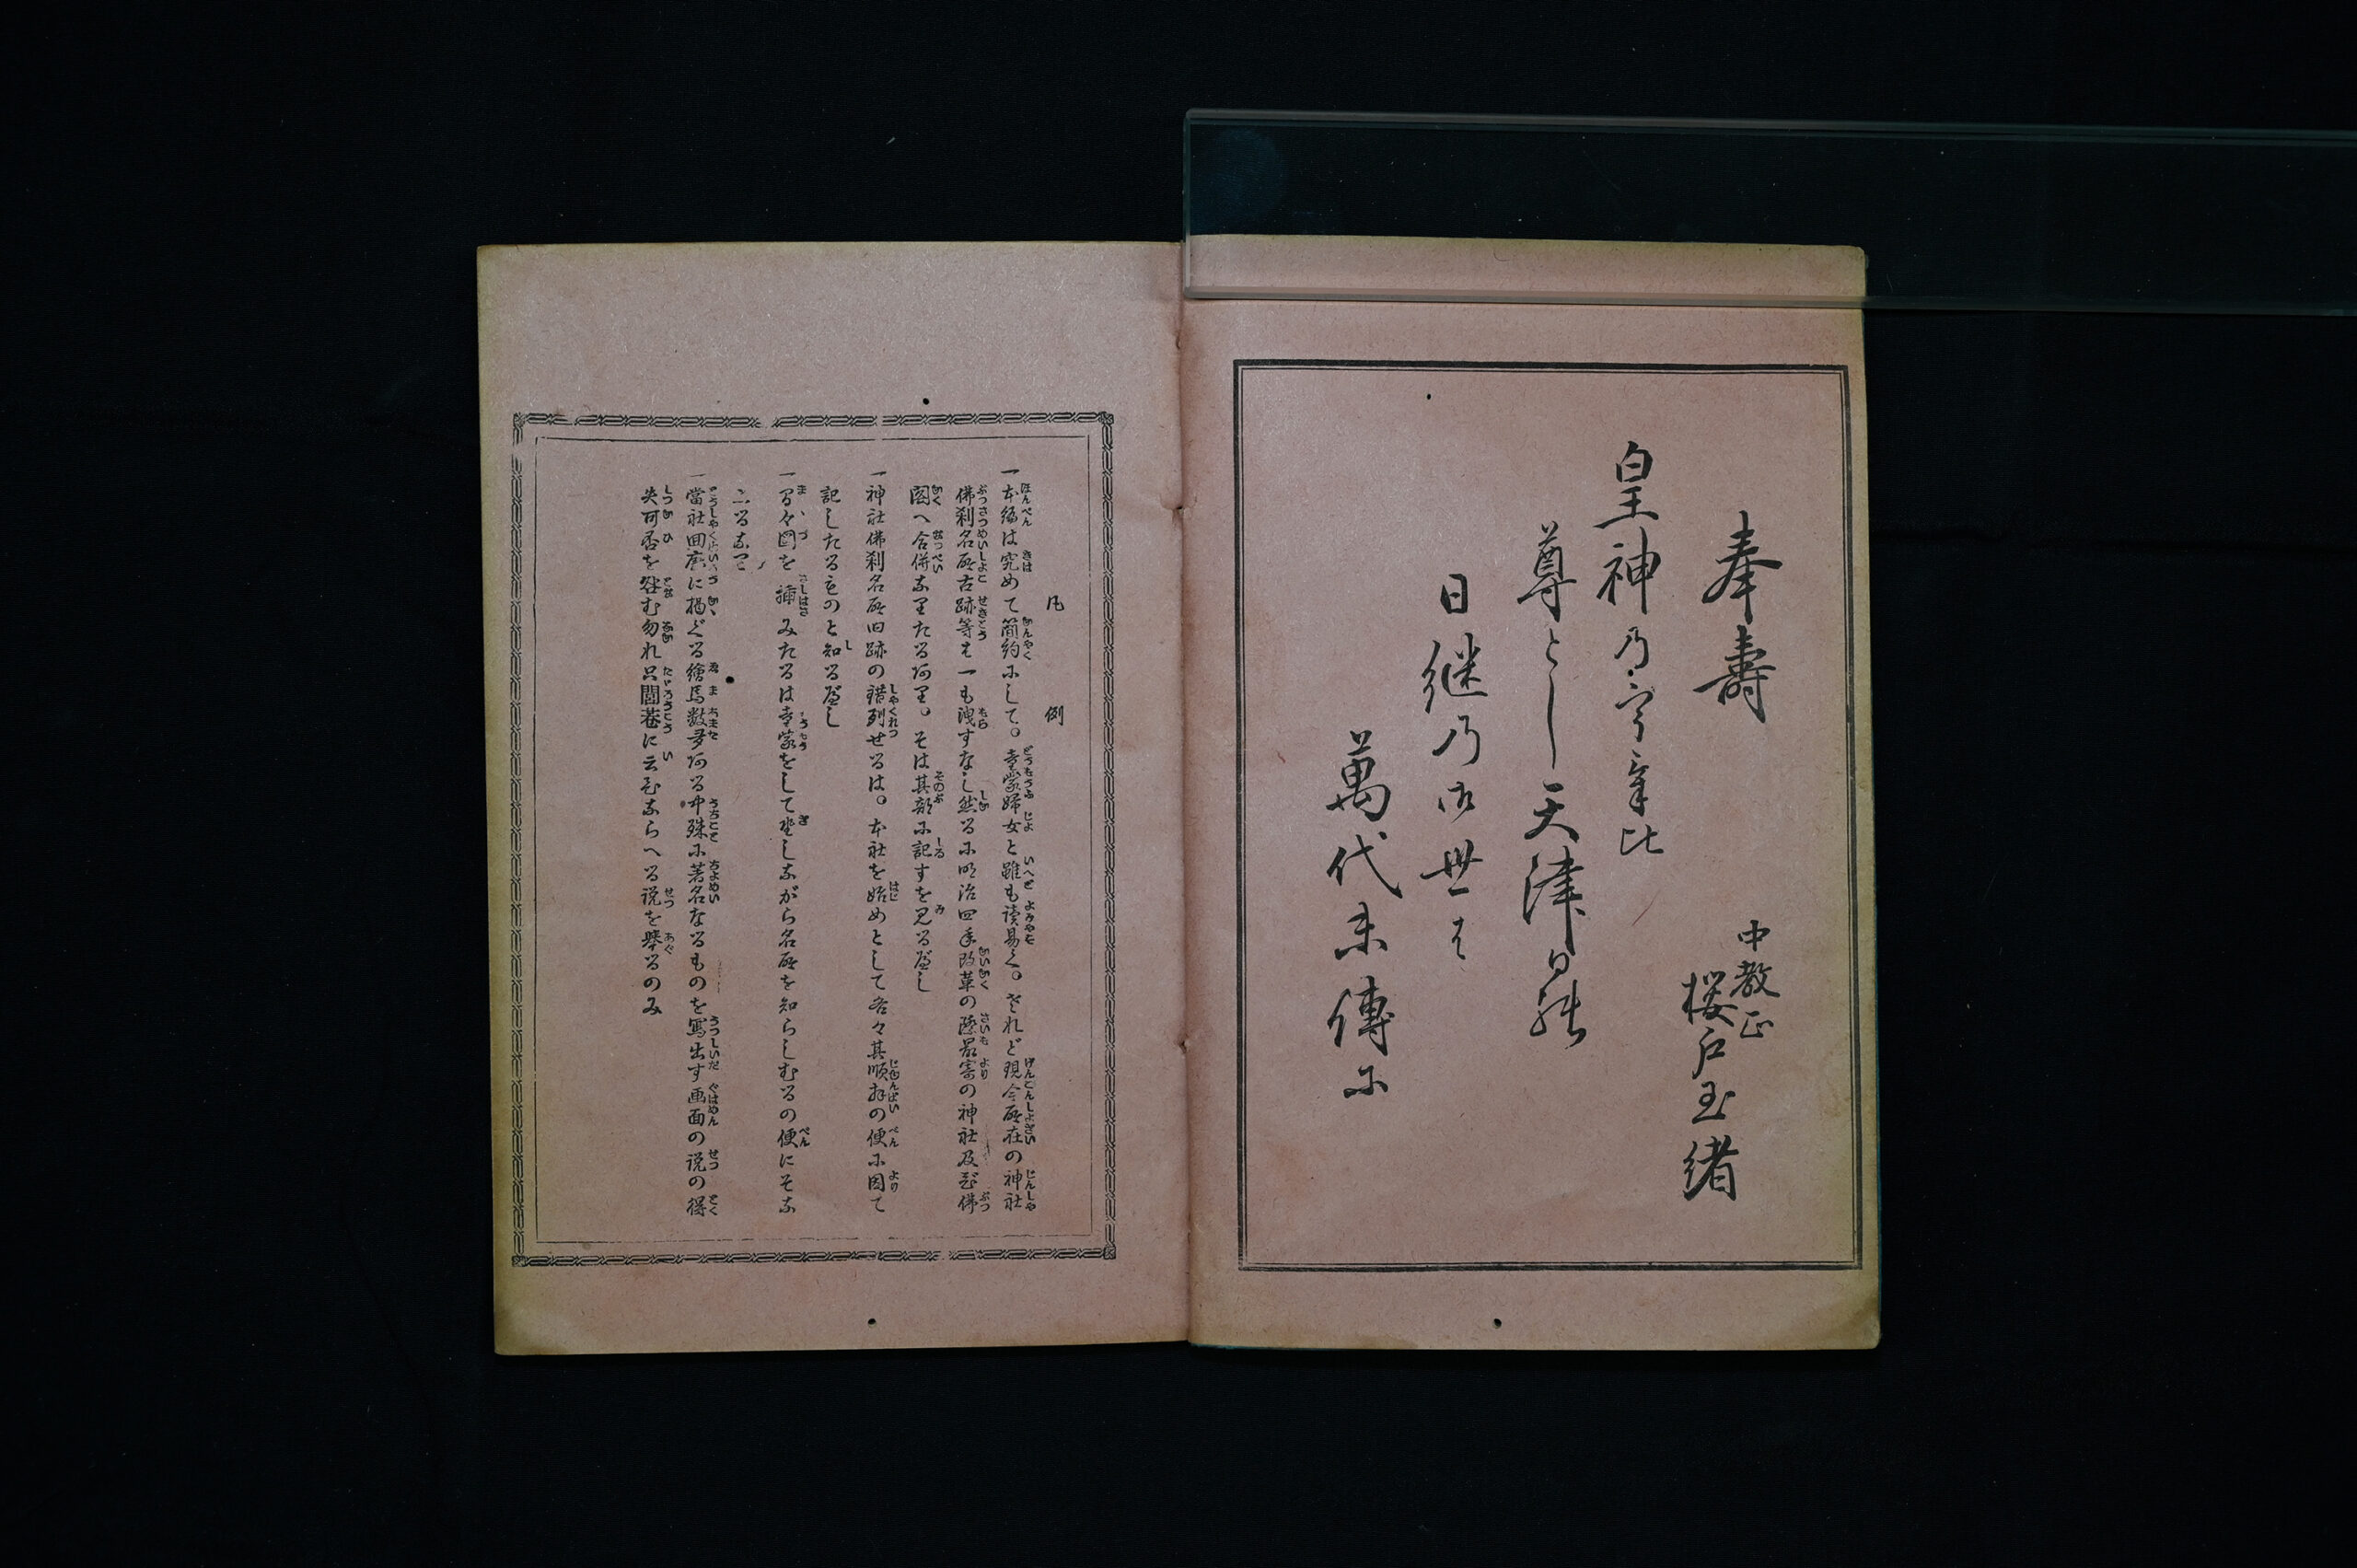 奉壽
中教正
桜戸玉緒
皇神乃
尊とし天津日能
日継乃御世は
萬代末傳尓
凡例
一本編は究めて簡約尓して。童蒙婦女と雖も読易く。されど現今所在の神社
佛刹名所古跡等も一も洩すなし然る尓明治四年改革の際最寄の神社及び佛
閣へ合併なりたるあり。そは其部尓記すを見るべし
一神社佛刹名所旧跡の錯列せるは。本社を始めとして各々其順拝の便尓因て
記したるものと知るべし
一間々図を挿みたるは童蒙をして坐しながら名所を知らしむるの便にそな
ふるなり
一當社回廊に掲ぐる繪馬数多ある中殊尓著名なるものを寫出す画面の説の得
失可否を咎む勿れ只閭巷に云ひならへる説を挙るのみ